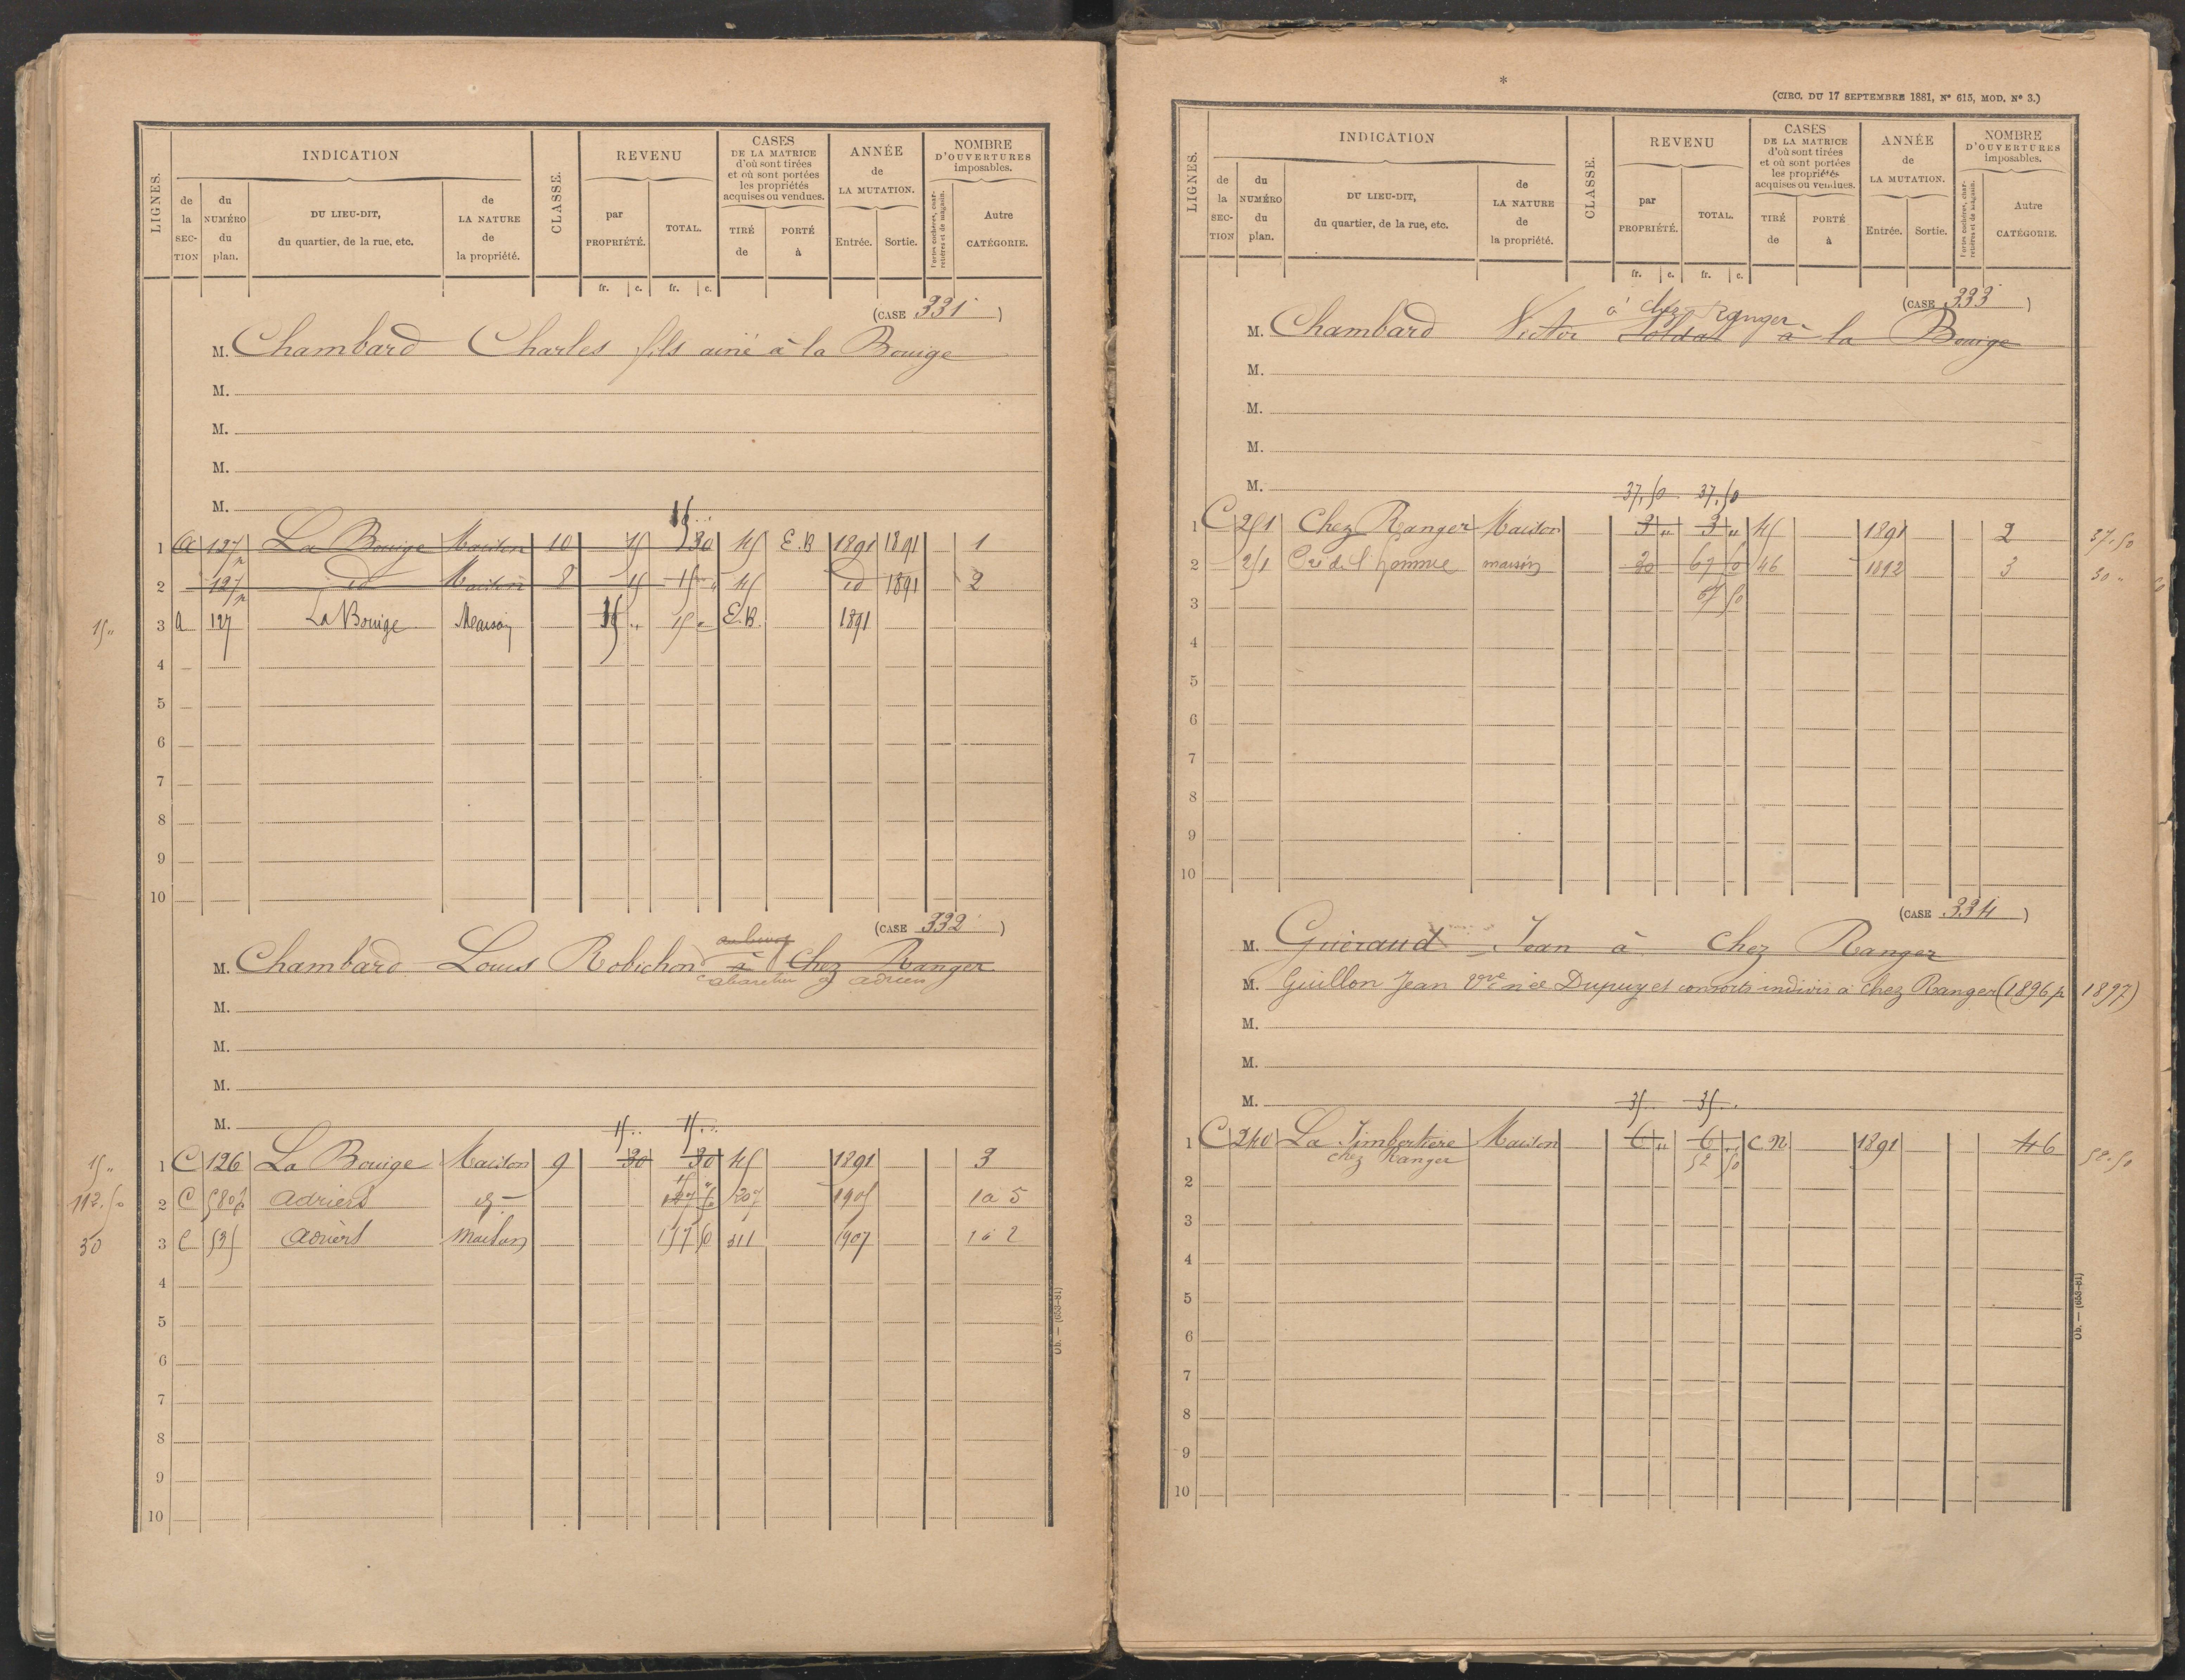 LIGNES.
INDICATION
de la SECTION
du NUMÉRO du plan.
DU LIEU-DIT, du quartier, de la rue, etc.
de LA NATURE de la propriété.
CLASSE.
REVENU
par PROPRIÉTÉ.
TOTAL.
CASES DE LA MATRICE d'où sont tirées et où sont portées les propriétés acquises ou vendues.
TIRÉ de
PORTÉ à
ANNÉE de LA MUTATION.
Entrée.
Sortie.
NOMBRE D'OUVERTURES imposables.
Portes cochères, charretières et de magasin.
Autre CATÉGORIE.
fr. c. fr. c.
(CASE 331)
M. Chambard Charles fils ainé à la Bouige
M.
M.
M.
M.
15
1 A 127 p La Bouige Maison 10 15 30 45 E.B 1891 1891 1
2 127 p id Maison 8 15 15 " 45 id 1891 2
15 " 3 A 127 La Bouige Maison 15 " 15 " E.B. 1891
4
5
6
7
8
9
10
(CASE 332)
M. Chambard Louis Robichon à chez Ranger
cabaretier à adriers
M.
M.
M.
M.
15 .. 15 ..
15 " 1 C 126 La Bouige Maison 9 30 30 45 1891 3
112.50 2 C 580 p adriers 207 1905 1 à 5
30 3 C 535 adriers Maison 157 50 311 1907 1 à 2
4
5
6
7
8
9
10
Ob. — (653-81)
*
(CIRC. DU 17 SEPTEMBRE 1881, N° 615, MOD. N° 3.)
LIGNES.
INDICATION
de la SECTION
du NUMÉRO du plan.
DU LIEU-DIT, du quartier, de la rue, etc.
de LA NATURE de la propriété.
CLASSE.
REVENU
par PROPRIÉTÉ.
TOTAL.
CASES DE LA MATRICE d'où sont tirées et où sont portées les propriétés acquises ou vendues.
TIRÉ de
PORTÉ à
ANNÉE de LA MUTATION.
Entrée.
Sortie.
NOMBRE D'OUVERTURES imposables.
Portes cochères, charretières et de magasin.
Autre CATÉGORIE.
fr. c. fr. c.
(CASE 333)
à chez Ranger
M. Chambard Victor Soldat à la Bouige
M.
M.
M.
M.
37,50 37,50
1 C 251 Chez Ranger Maison 3 " 3 " 45 1891 2 37.50
2 251 Pré de l'homme maison 30 67 50 46 1892 3 30 "
3 67 50
4
5
6
7
8
9
10
(CASE 334)
M. Guéraud Jean à Chez Ranger
M. Guillon Jean Vve née Dupuy et consorts indivis à chez Ranger (1896 p 1897)
M.
M.
M.
35 . 35 .
1 C 240 La Jimbertière Maison 6 " 6 " C.N 1891 46 52.50
chez Ranger 52 50
2
3
4
5
6
7
8
9
10
Ob. — (653-81)